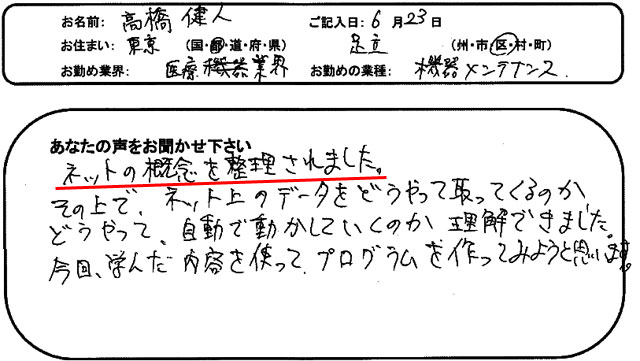 お名前: 高橋 健人 ご記入日: 6 月 23 日
お住まい: 東京 (国・都・道・府・県) 足立 (州・市・区・村・町)
お勤め業界: 医療機器業界 お勤めの業種: 機器メンテナンス
あなたの声をお聞かせ下さい
ネットの概念を整理されました。
その上で、ネット上のデータをどうやって取ってくるのか
どうやって、自動で動かしていくのか 理解できました。
今回、学んだ内容を使って プログラムを作ってみようと思います。